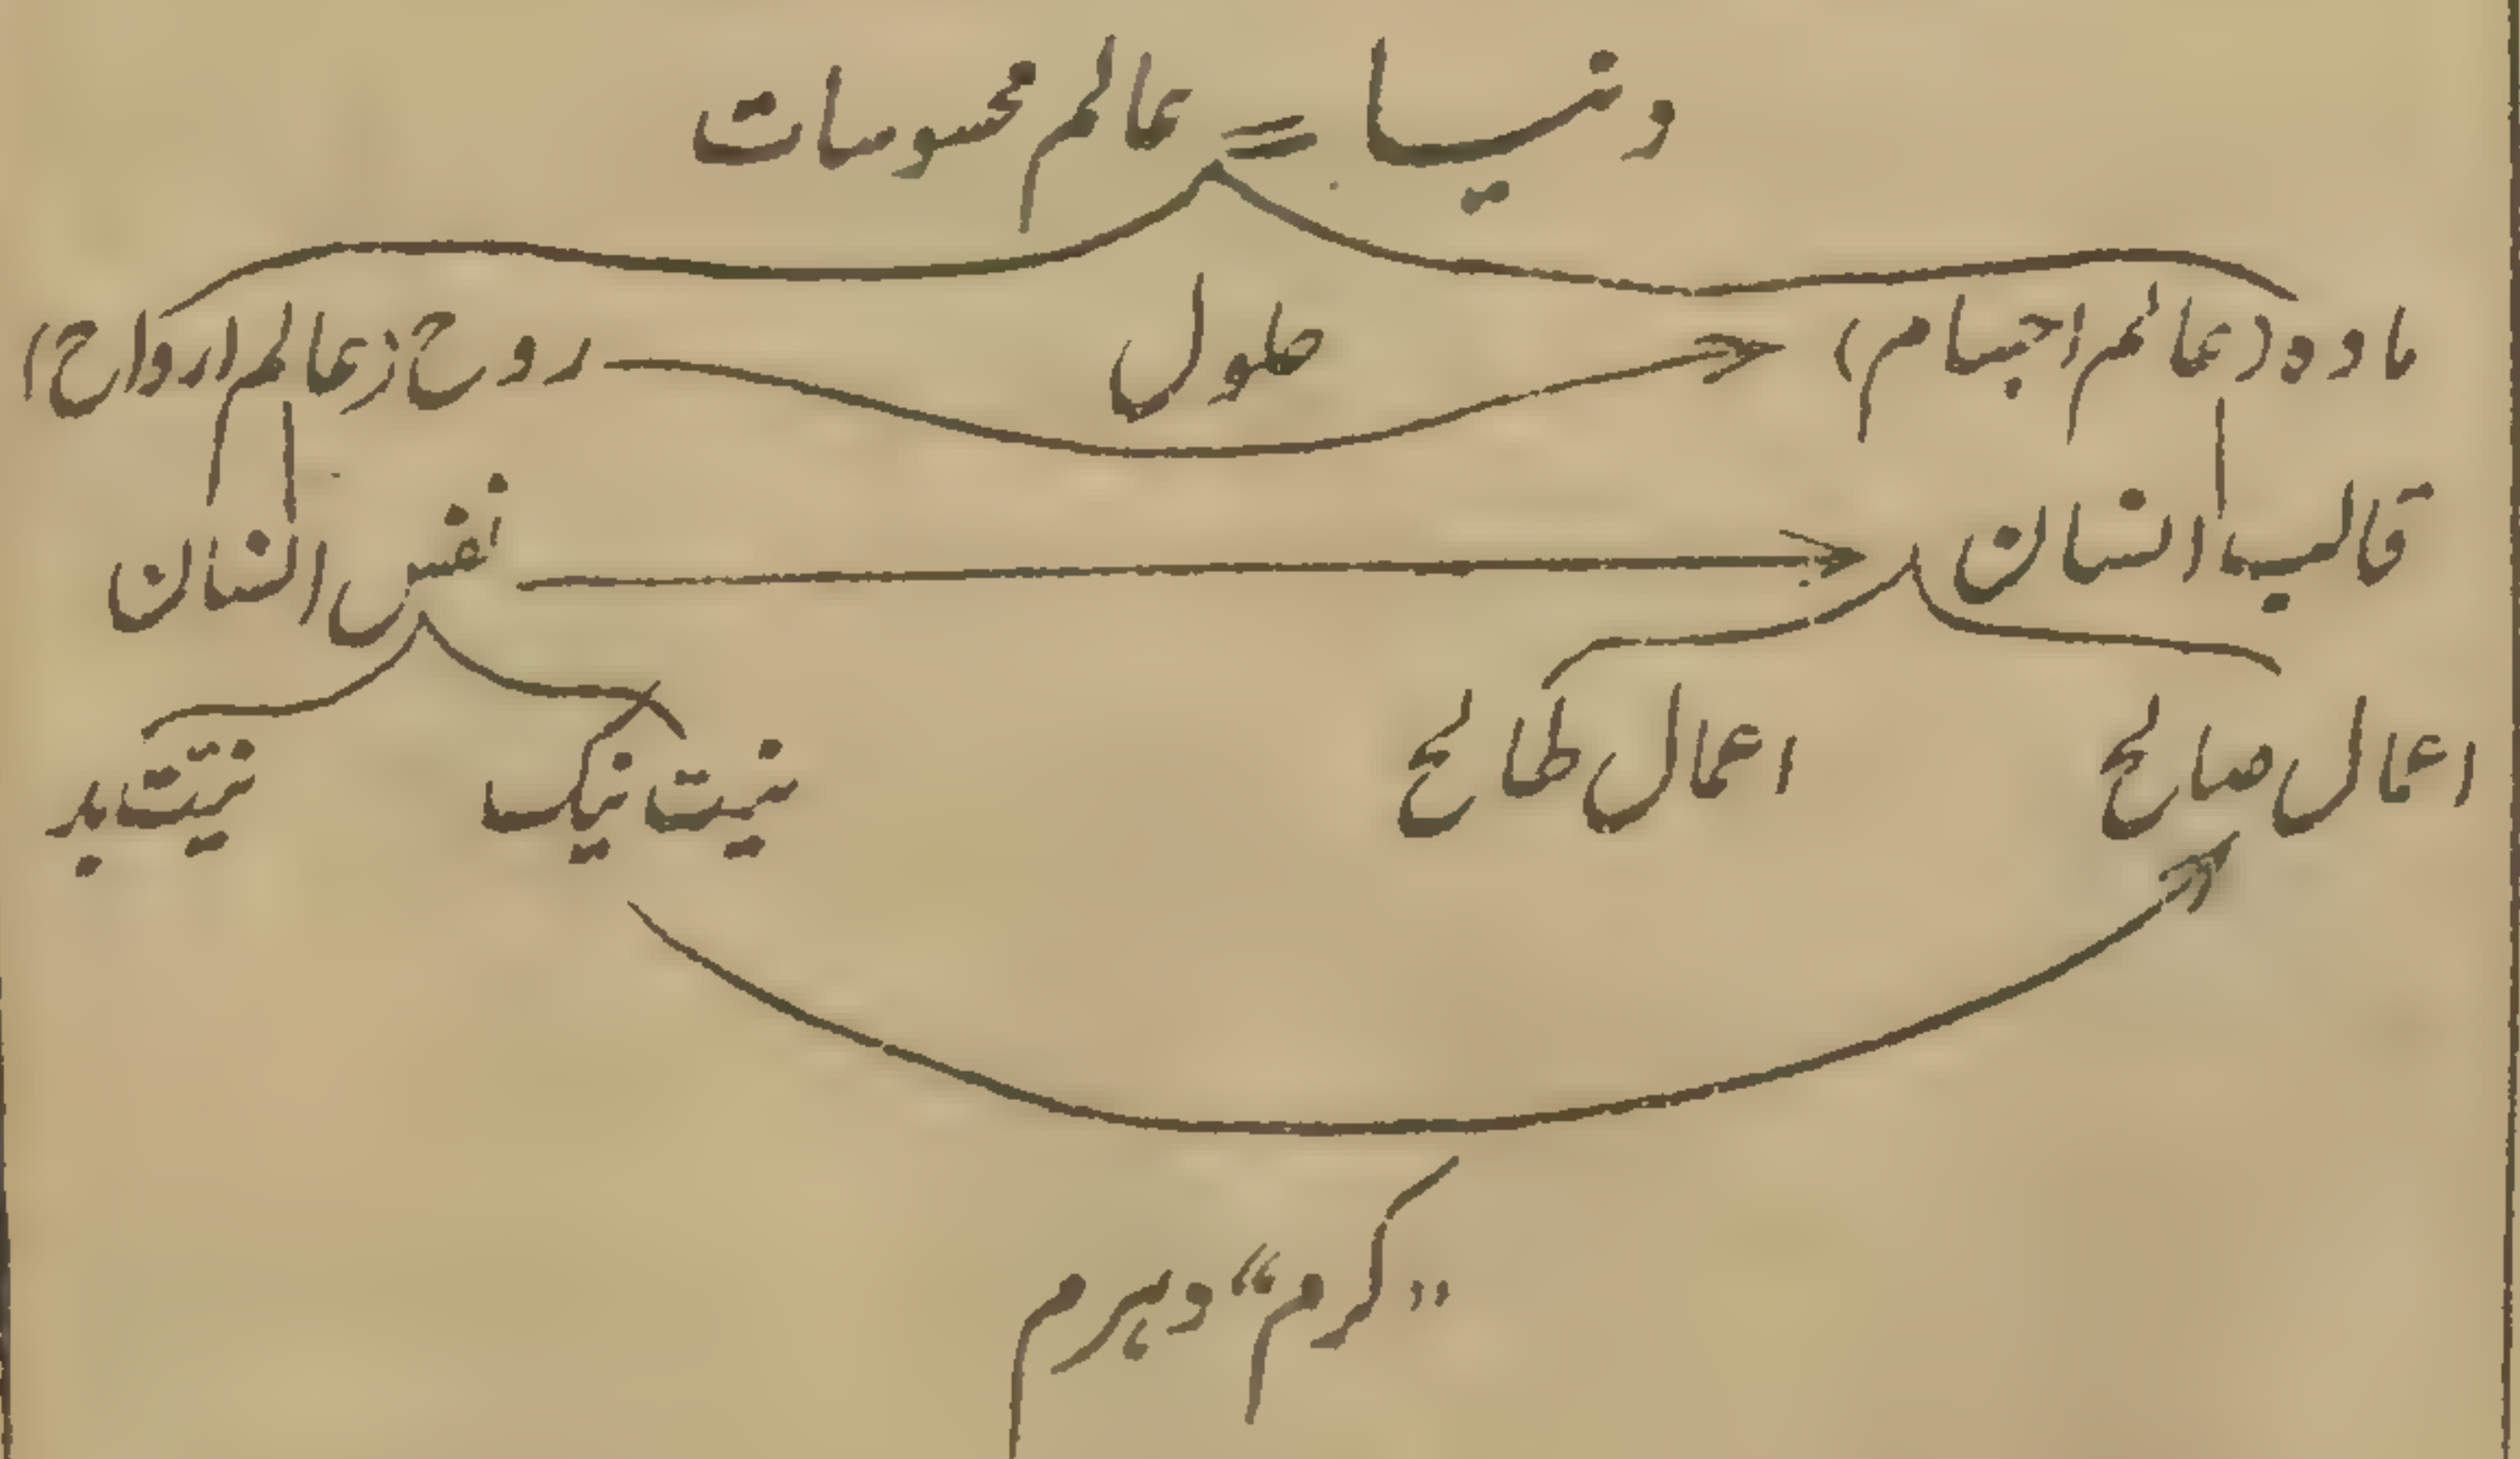 دنیا = عالم محسوسات
مادہ (عالم اجسام) حلول روح (عالم ارواح)
قالب انسان نفس انسان
اعمال صالح اعمال طالح نیت نیک نیت بد
"کرم" دہرم